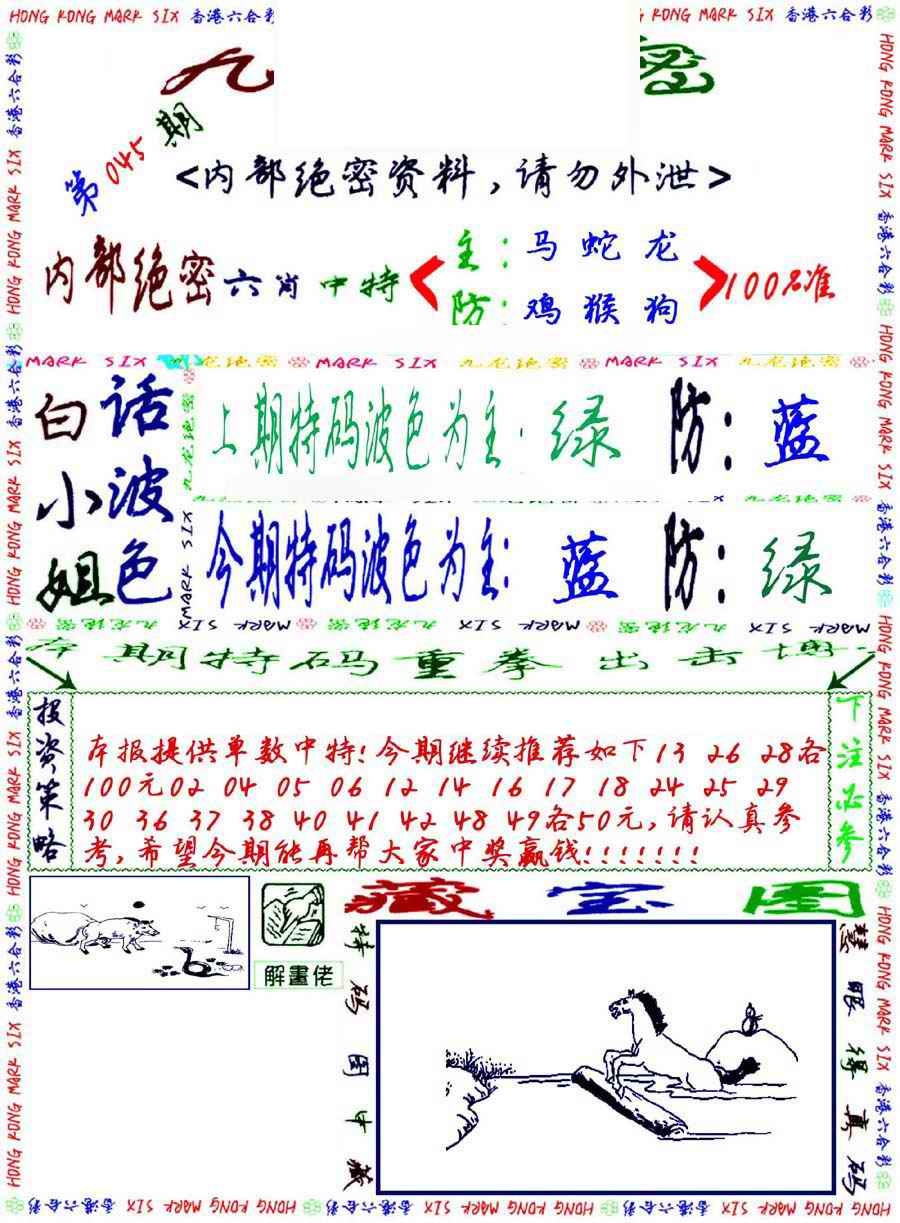 HONG KONG MARK SIX 香港六合彩
KONG MARK SIX 香港六合彩
九
密
第045期
<内部绝密资料,请勿外泄>
内部绝密六肖中特
主:马蛇龙
防:鸡猴狗
100%准
MARK SIX 九龙绝密 MARK SIX 九龙绝密 MARK SIX 九龙绝密
白小姐
话波色
上期特码波色为主:绿 防:蓝
今期特码波色为主:蓝 防:绿
本期特码重拳出击
投资策略
本报提供单数中特!今期继续推荐如下13 26 28各
100元02 04 05 06 12 14 16 17 18 24 25 29
30 36 37 38 40 41 42 48 49各50元,请认真参
考,希望今期能再帮大家中奖赢钱!!!!!!!
下注必参
解畫佬
藏宝图
特码图中藏
慧眼得真码
HONG KONG MARK SIX 香港六合彩